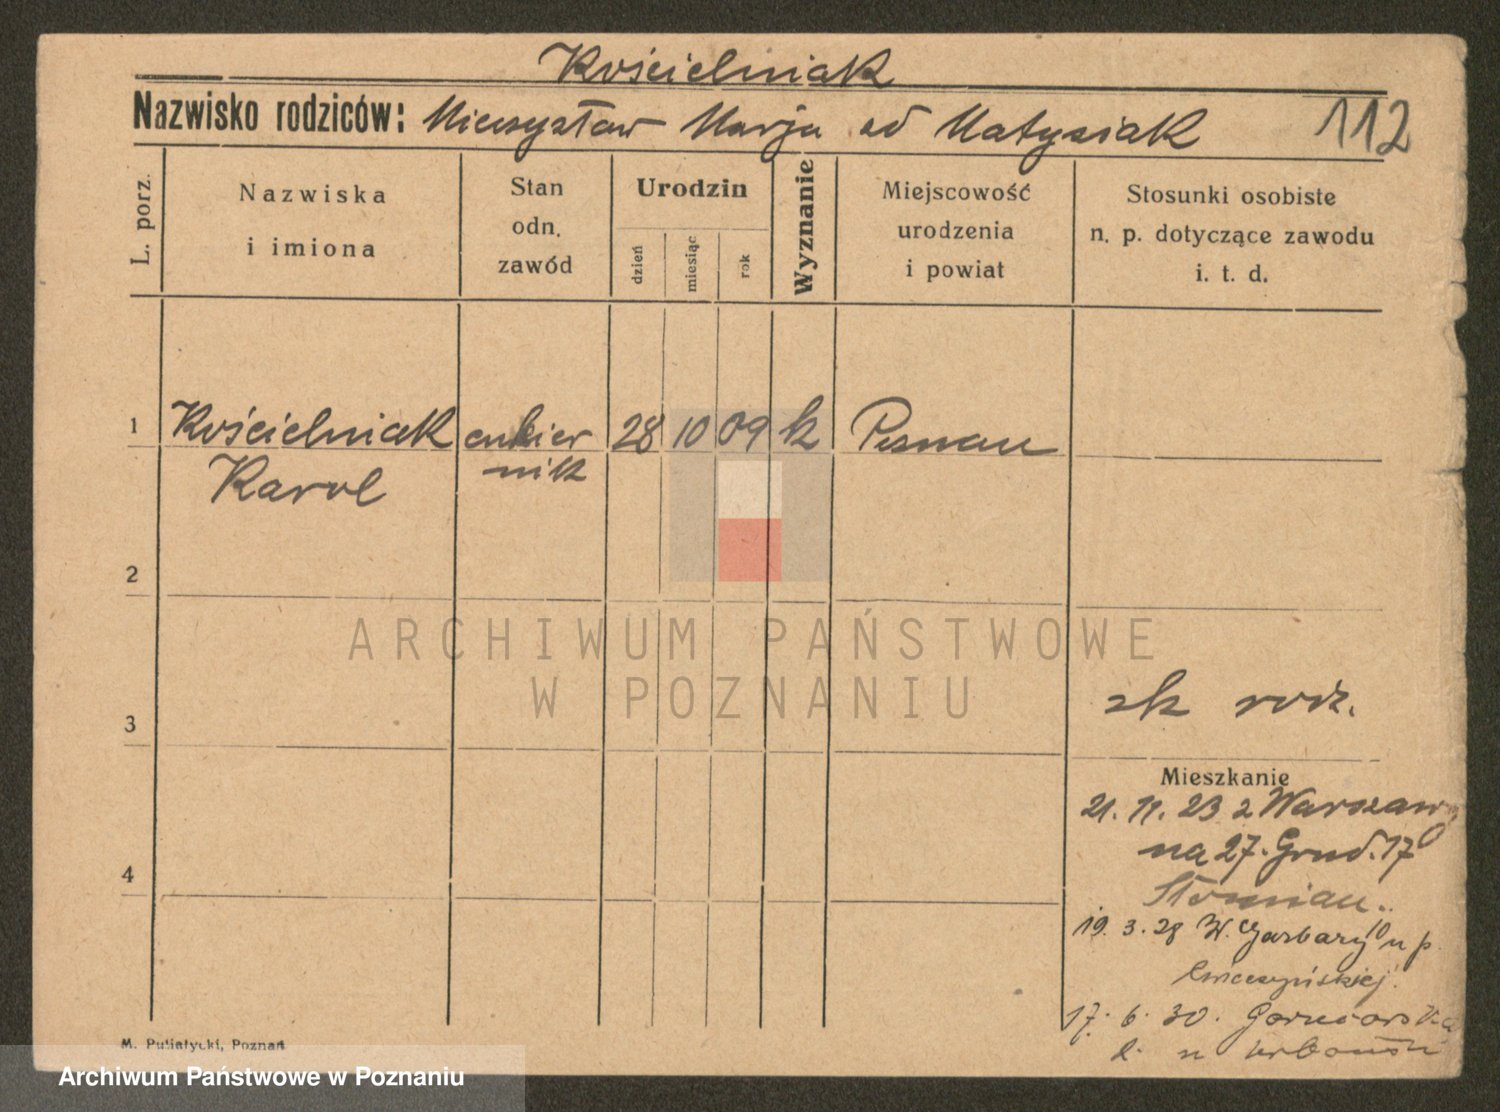 Kościelniak
Nazwisko rodziców: Mieczysław Marja od Matysiak 112
L. porz.
Nazwiska
i imiona
Stan
odn.
zawód
Urodzin
dzień
miesiąc
rok
Wyznanie
Miejscowość
urodzenia
i powiat
Stosunki osobiste
n. p. dotyczące zawodu
i. t. d.
1 Kościelniak cukier 28 10 09 k Poznań
Karol nik
2
3
zk rodz.
Mieszkanie
21. 11. 23 z Warszawy
na 27. Grud. 17
4
19. 3. 28 W. Garbary 10 u p.
17. 6. 30.
M. Putiatycki, Poznań
ARCHIWUM PAŃSTWOWE
W POZNANIU
Archiwum Państwowe w Poznaniu